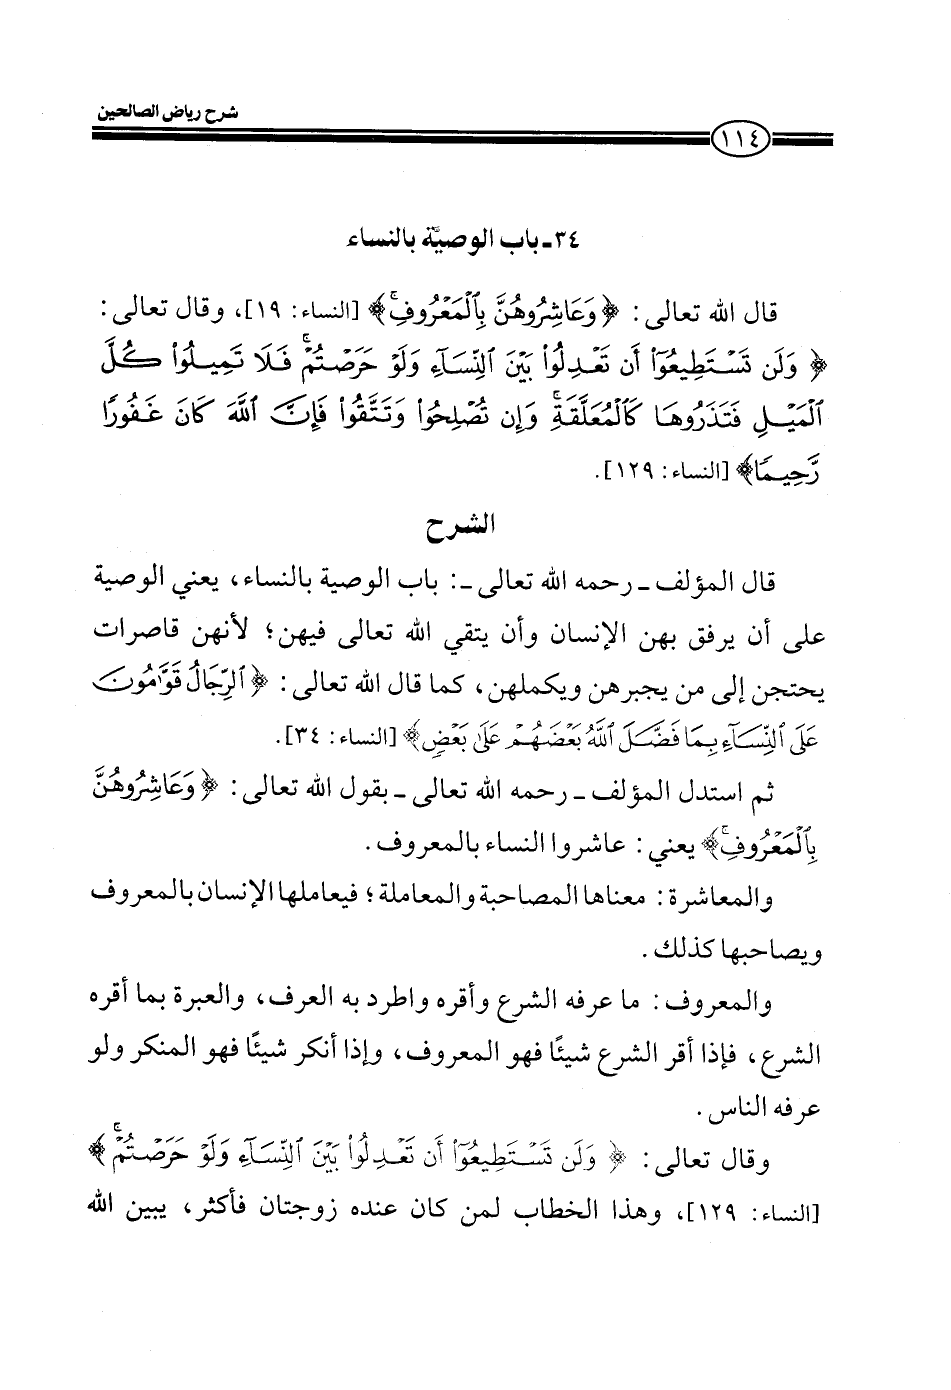 شرح رياض الصالحين
١١٤
٣٤ـ باب الوصيَّة بالنساء
قال الله تعالى: ﴿وَعَاشِرُوهُنَّ بِٱلۡمَعۡرُوفِۚ﴾ [النساء: ١٩]، وقال تعالى:
﴿وَلَن تَسۡتَطِيعُوٓاْ أَن تَعۡدِلُواْ بَيۡنَ ٱلنِّسَآءِ وَلَوۡ حَرَصۡتُمۡۖ فَلَا تَمِيلُواْ كُلَّ
ٱلۡمَيۡلِ فَتَذَرُوهَا كَٱلۡمُعَلَّقَةِۚ وَإِن تُصۡلِحُواْ وَتَتَّقُواْ فَإِنَّ ٱللَّهَ كَانَ غَفُورٗا
رَّحِيمٗا﴾ [النساء: ١٢٩].
الشرح
قال المؤلف ـ رحمه الله تعالى ـ: باب الوصية بالنساء، يعني الوصية
على أن يرفق بهن الإنسان وأن يتقي الله تعالى فيهن؛ لأنهن قاصرات
يحتجن إلى من يجبرهن ويكملهن، كما قال الله تعالى: ﴿ٱلرِّجَالُ قَوَّٰمُونَ
عَلَى ٱلنِّسَآءِ بِمَا فَضَّلَ ٱللَّهُ بَعۡضَهُمۡ عَلَىٰ بَعۡضٖ﴾ [النساء: ٣٤].
ثم استدل المؤلف ـ رحمه الله تعالى ـ بقول الله تعالى: ﴿وَعَاشِرُوهُنَّ
بِٱلۡمَعۡرُوفِۚ﴾ يعني: عاشروا النساء بالمعروف.
والمعاشرة: معناها المصاحبة والمعاملة؛ فيعاملها الإنسان بالمعروف
ويصاحبها كذلك.
والمعروف: ما عرفه الشرع وأقره واطرد به العرف، والعبرة بما أقره
الشرع، فإذا أقر الشرع شيئًا فهو المعروف، وإذا أنكر شيئًا فهو المنكر ولو
عرفه الناس.
وقال تعالى: ﴿وَلَن تَسۡتَطِيعُوٓاْ أَن تَعۡدِلُواْ بَيۡنَ ٱلنِّسَآءِ وَلَوۡ حَرَصۡتُمۡۖ﴾
[النساء: ١٢٩]، وهذا الخطاب لمن كان عنده زوجتان فأكثر، يبين الله